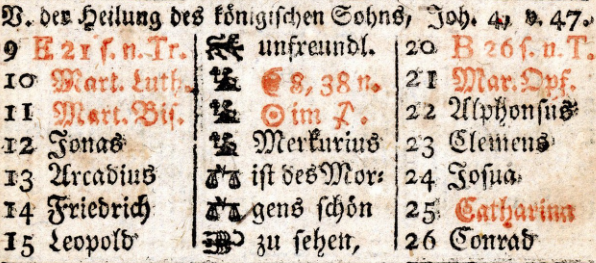 V. der Heilung des königischen Sohns, Joh. 4, v. 47.
9 E 21 s. n. Tr. unfreundl. 20 B 26 s. n. T.
10 Mart. Luth. 8, 38 n. 21 Mar. Opf.
11 Mart. Bis. ☉ im ♐. 22 Alphonsus
12 Jonas Merkurius 23 Clemens
13 Arcadius ist des Mor⸗ 24 Josua
14 Friedrich gens schön 25 Catharina
15 Leopold zu sehen, 26 Conrad